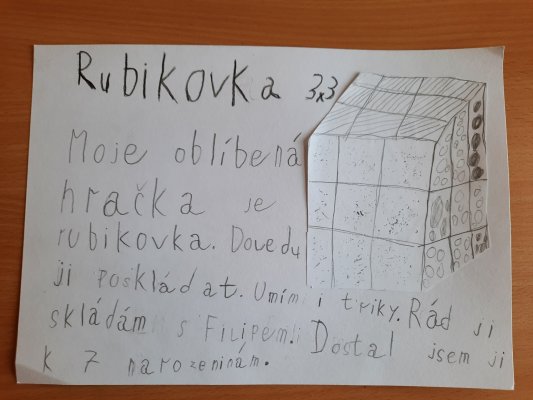 Rubikovka 3x3
Moje oblíbená
hračka je
rubikovka. Dovedu
ji poskládat. Umím i triky. Rád ji
skládám s Filipem. Dostal jsem ji
k 7 narozeninám.